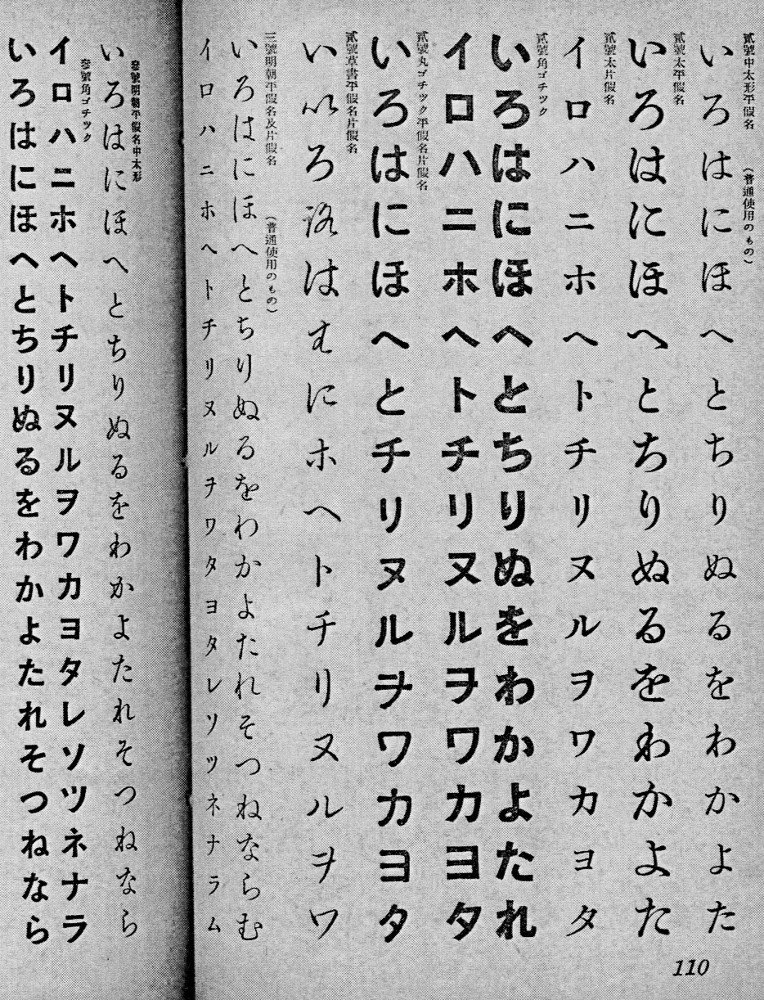 貳號中太形平假名 (普通使用のもの)
いろはにほへとちりぬるをわかよた
貳號太平假名
いろはにほへとちりぬるをわかよた
貳號太片假名
イロハニホヘトチリヌルヲワカヨタ
貳號角ゴチツク
いろはにほへとちりぬをわかよたれ
イロハニホヘトチリヌルヲワカヨタ
貳號丸ゴチツク平假名片假名
いろはにほへとチリヌルヲワカヨタ
貳號草書平假名片假名
い以ろ路はにホヘトチリヌルヲワ
三號明朝平假名及片假名 (普通使用のもの)
いろはにほへとちりぬるをわかよたれそつねならむ
イロハニホヘトチリヌルヲワタヨタレソツネナラム
110
參號明朝平假名中太形
いろはにほへとちりぬるをわかよたれそつねなら
參號角ゴチツク
イロハニホヘトチリヌルヲワカヨタレソツネナラ
いろはにほへとちりぬるをわかよたれそつねなら